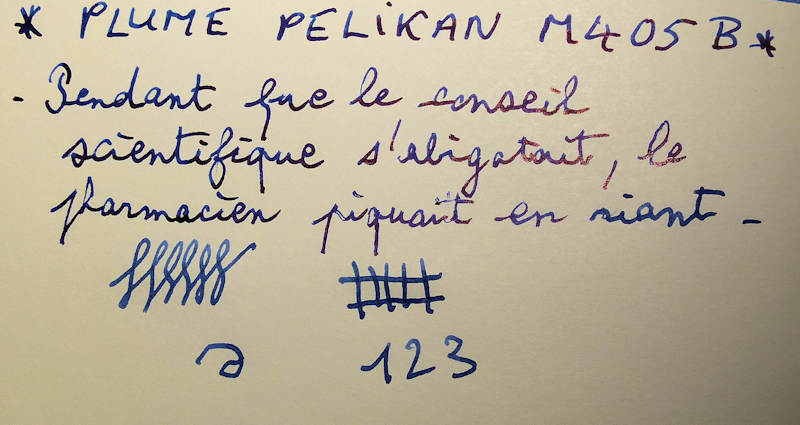 * PLUME PELIKAN M405 B *
- Pendant que le conseil
scientifique s'aligotait, le
pharmacien piquait en riant -
123